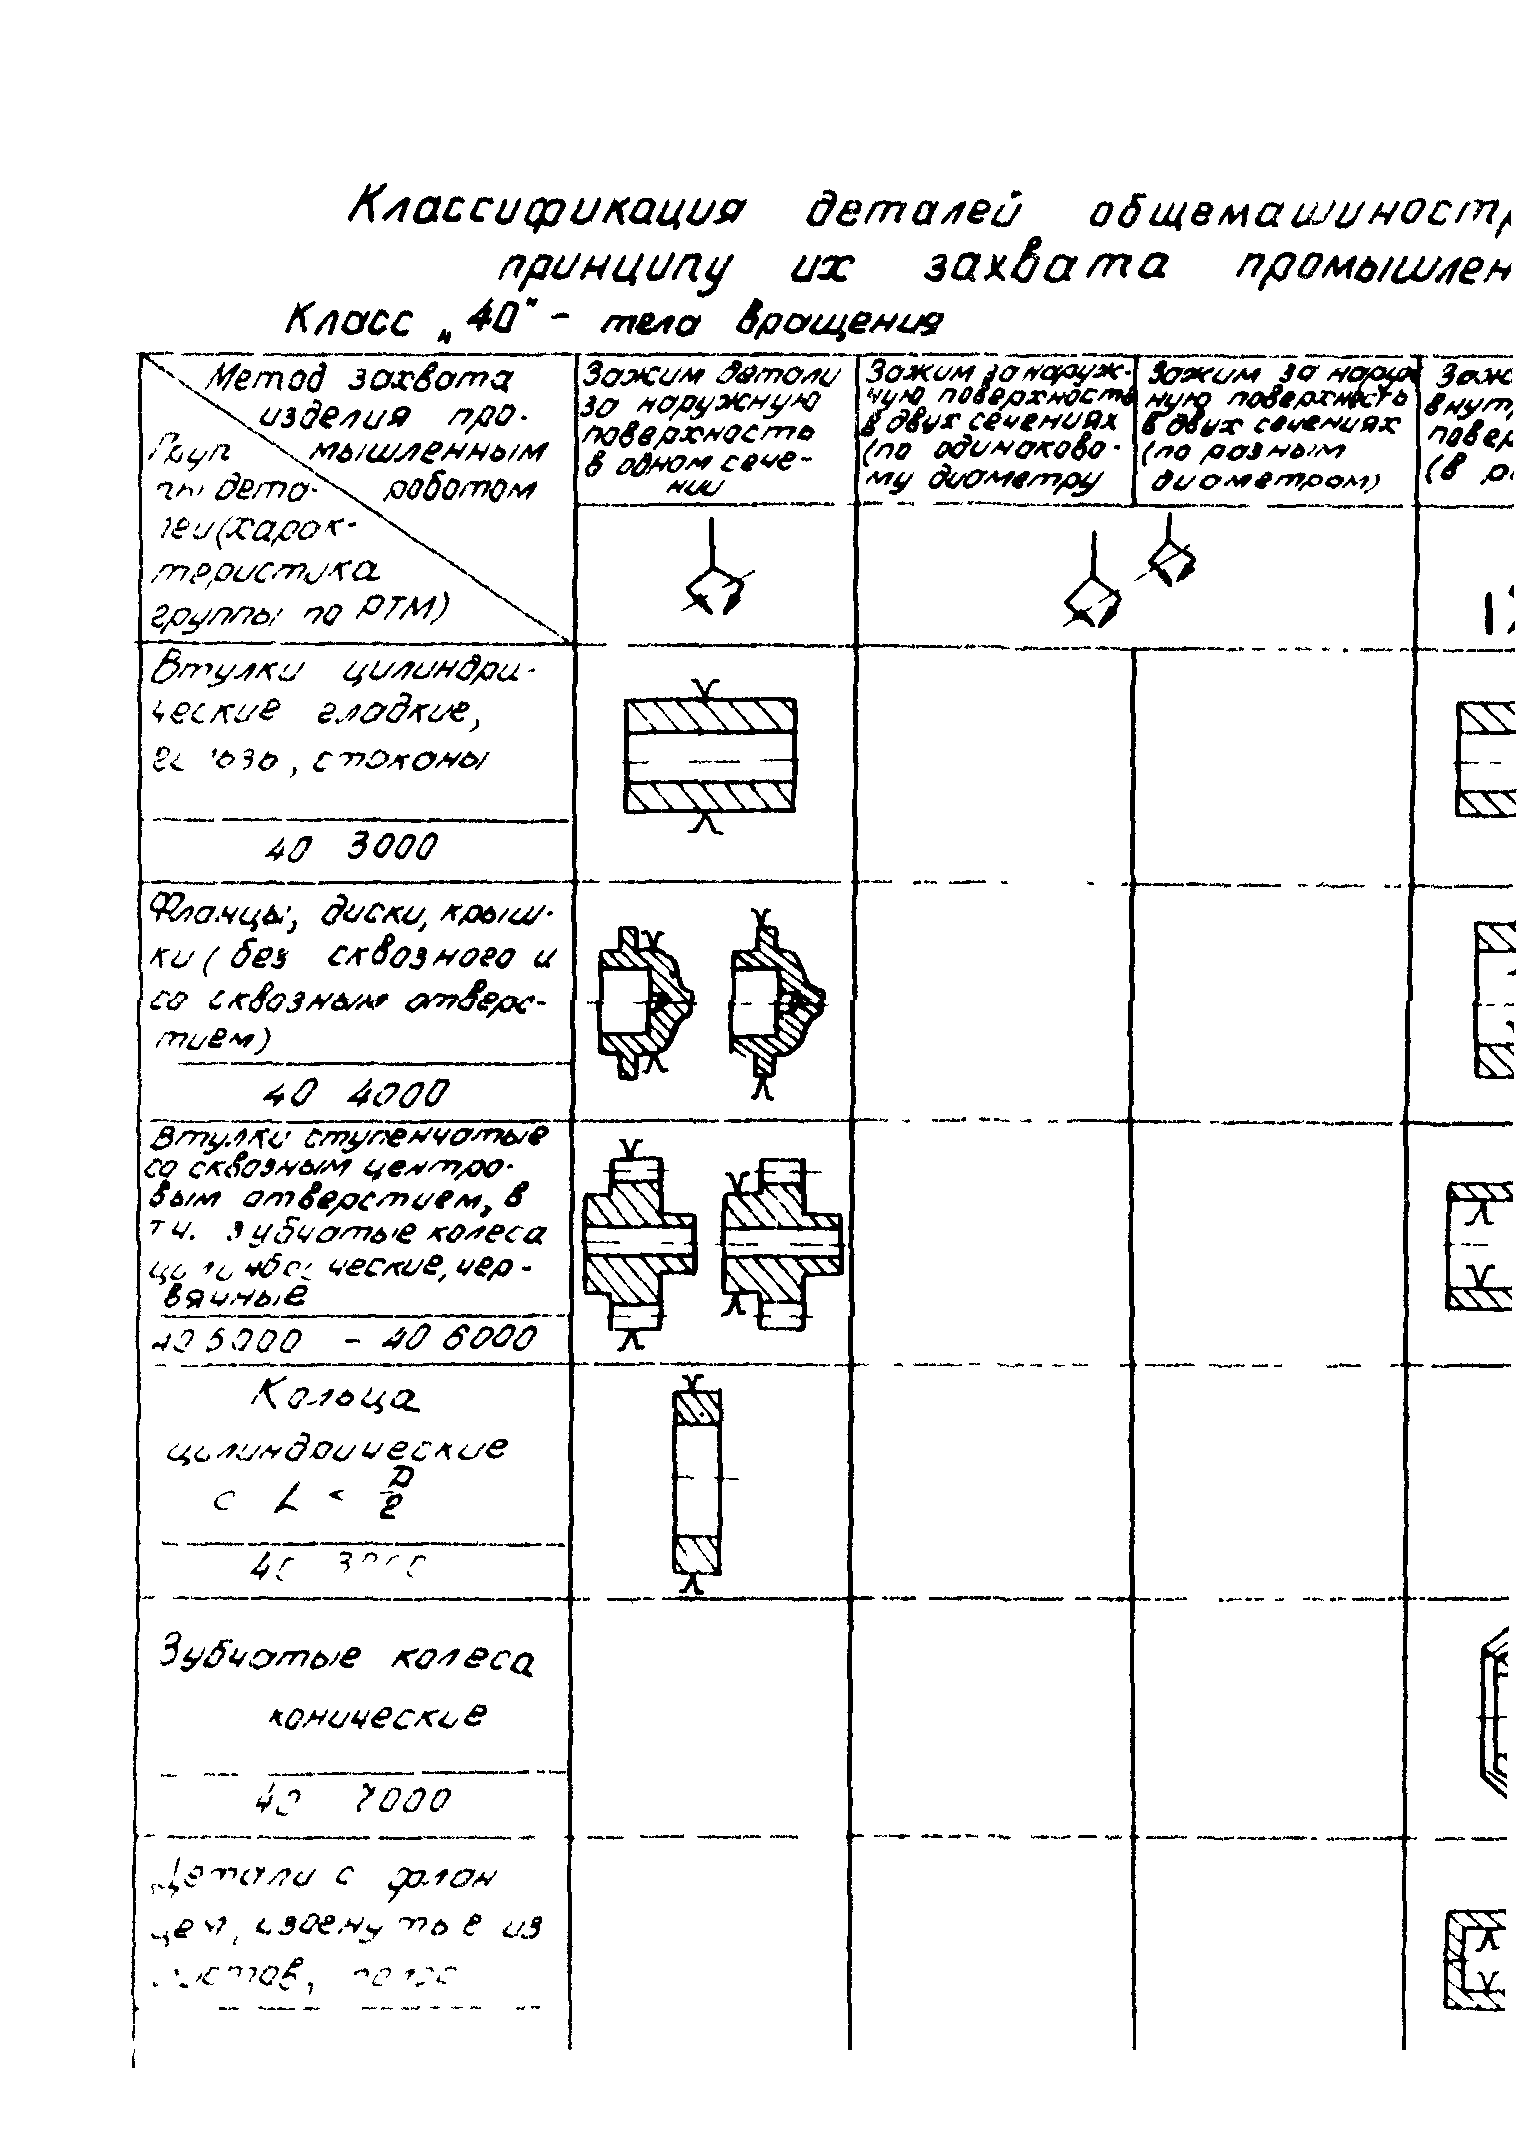 Классификация деталей
принципу их захвата
Класс „40" - тела вращения
Метод захвата
изделия про-
мышленным
роботом
дета-
(харак-
теристика
группы по РТМ)
Зажим детали
за наружную
поверхность
в одном сече-
нии
Зажим за наруж-
ную поверхность
в двух сечениях
(по одинаково-
му диаметру
Зажим за наруж
ную поверхность
в двух сечениях
(по разным
диаметрам)
(в
Втулки цилиндри-
ческие гладкие,
стаканы
40 3000
Фланцы, диски, крыш-
ки (без сквозного и
со сквозным отверс-
тием)
40 4000
Втулки ступенчатые
со сквозным центро-
вым отверстием, в
т.ч. зубчатые колеса
чер-
вячные
40 5000 - 40 6000
Кольца
цилиндрические
с L < D/2
40
Зубчатые колеса
конические
40 7000
Детали с флан
изогнутые из